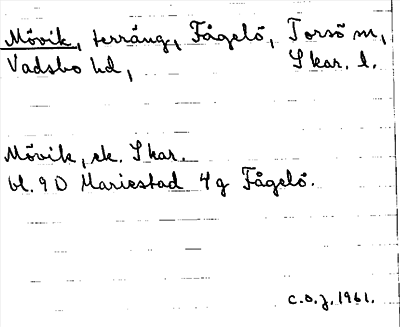 Mövik, terräng, Fågelö, Torsö sn,
Vadsbo hd, Skar. l.
Mövik, ek. Skar.
bl. 9 D Mariestad 4 g Fågelö.
c.o.j. 1961.